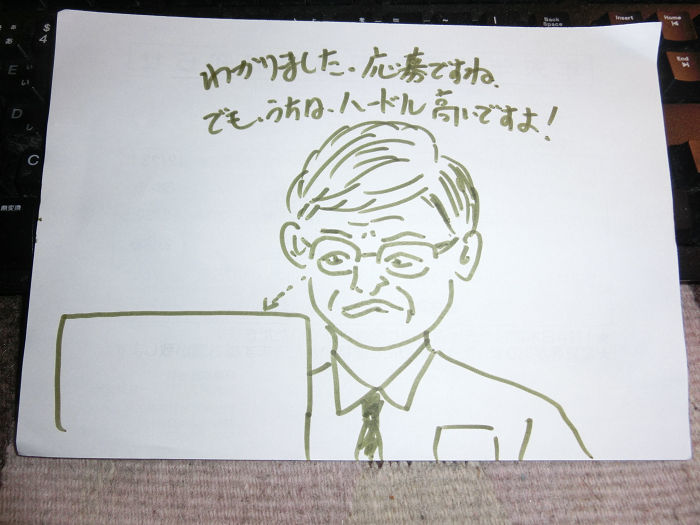 わかりました、応募ですね、
でも、うちは、ハードル高いですよ！
Back
Space
Insert
Home
End
$
4
E
い
D
し
C